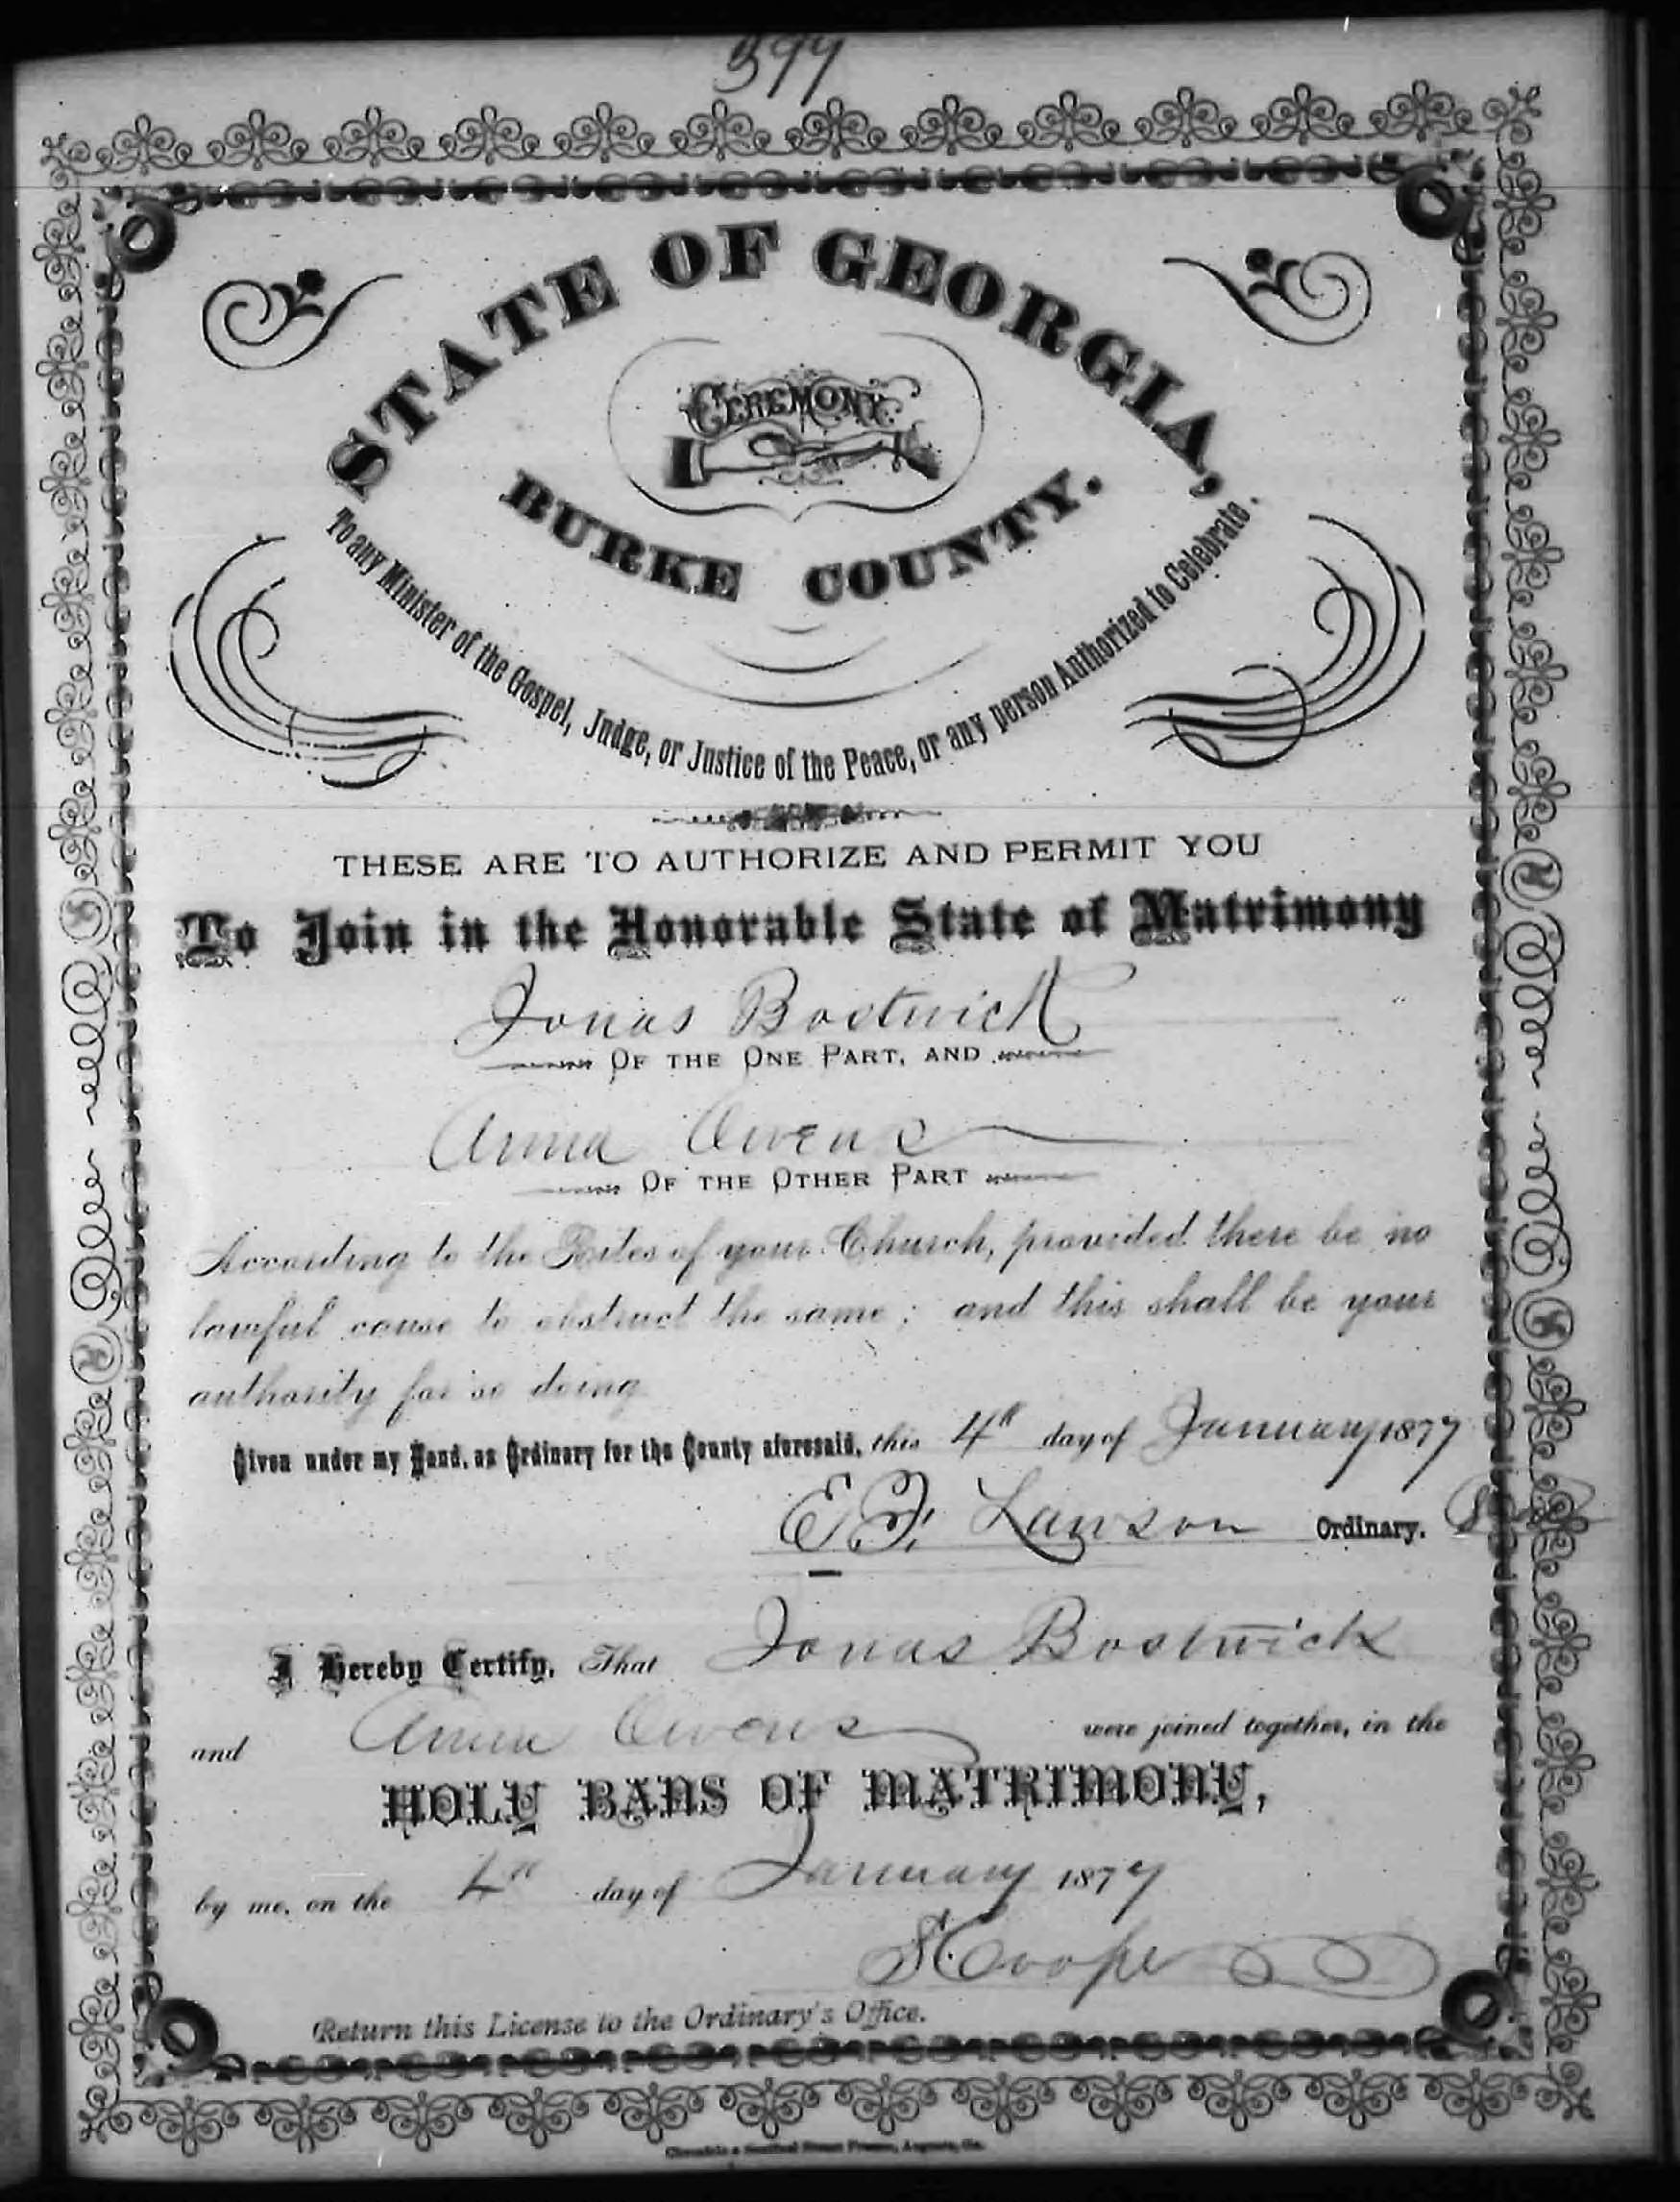 399
STATE OF GEORGIA,
CEREMONY
BURKE COUNTY.
To any Minister of the Gospel, Judge, or Justice of the Peace, or any person Authorized to Celebrate.
THESE ARE TO AUTHORIZE AND PERMIT YOU
To Join in the Honorable State of Matrimony
Jonas Bostwick
OF THE ONE PART, AND
Anna Owens
OF THE OTHER PART
According to the Rites of your Church, provided there be no
lawful cause to obstruct the same; and this shall be your
authority for so doing
Given under my Hand, as Ordinary for the County aforesaid, this 4th day of January 1877
E.F. Lawson Ordinary. Seal
I Hereby Certify, That Jonas Bostwick
and Anna Owens were joined together, in the
HOLY BANS OF MATRIMONY,
by me, on the 4th day of January 1877
S Cooper
Return this License to the Ordinary's Office.
Chronicle & Sentinel Steam Presses, Augusta, Ga.